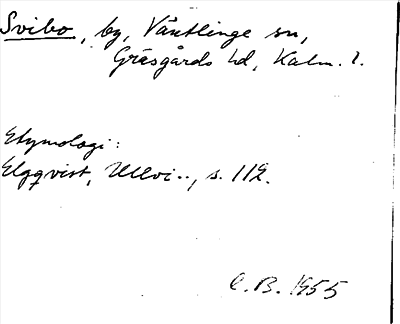 Svibo, by, Växtlinge sn,
Gräsgårds hd, Kalm. l.
Etymologi:
Elgqvist, Ullvi.., s. 112.
C.B. 1955